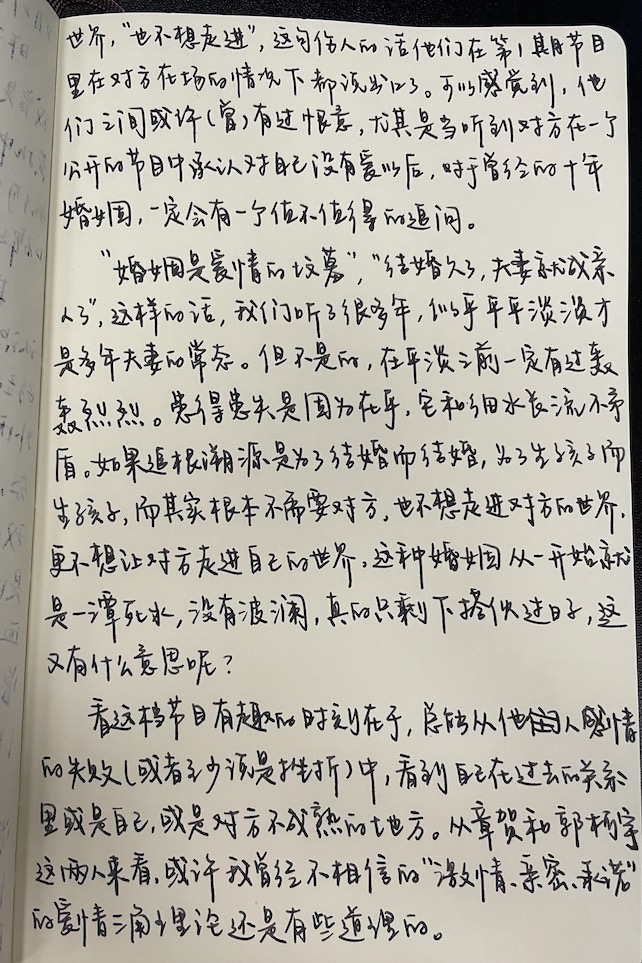 世界，“也不想走进”，这句伤人的话他们在第1期节目
里在对方在场的情况下都说出口了。可以感觉到，他
们之间或许（曾）有过恨意，尤其是当听到对方在一个
公开的节目中承认对自己没有爱以后，对于曾经的十年
婚姻，一定会有一个值不值得的追问。
“婚姻是爱情的坟墓”，“结婚久了，夫妻就成亲
人了”，这样的话，我们听了很多年，似乎平平淡淡才
是多年夫妻的常态。但不是的，在平淡之前一定有过轰
轰烈烈。患得患失是因为在乎，它和细水长流不矛
盾。如果追根溯源是为了结婚而结婚，为了生孩子而
生孩子，而其实根本不需要对方，也不想走进对方的世界，
更不想让对方走进自己的世界，这种婚姻从一开始就
是一潭死水，没有波澜，真的只剩下搭伙过日子，这
又有什么意思呢？
看这档节目有趣的时刻在于，总能从他人感情
的失败（或者至少该是挫折）中，看到自己在过去的关系
里或是自己，或是对方不成熟的地方。从章贺和郭柯宇
这两人来看，或许我曾经不相信的“激情、亲密、承诺”
的爱情三角理论还是有些道理的。